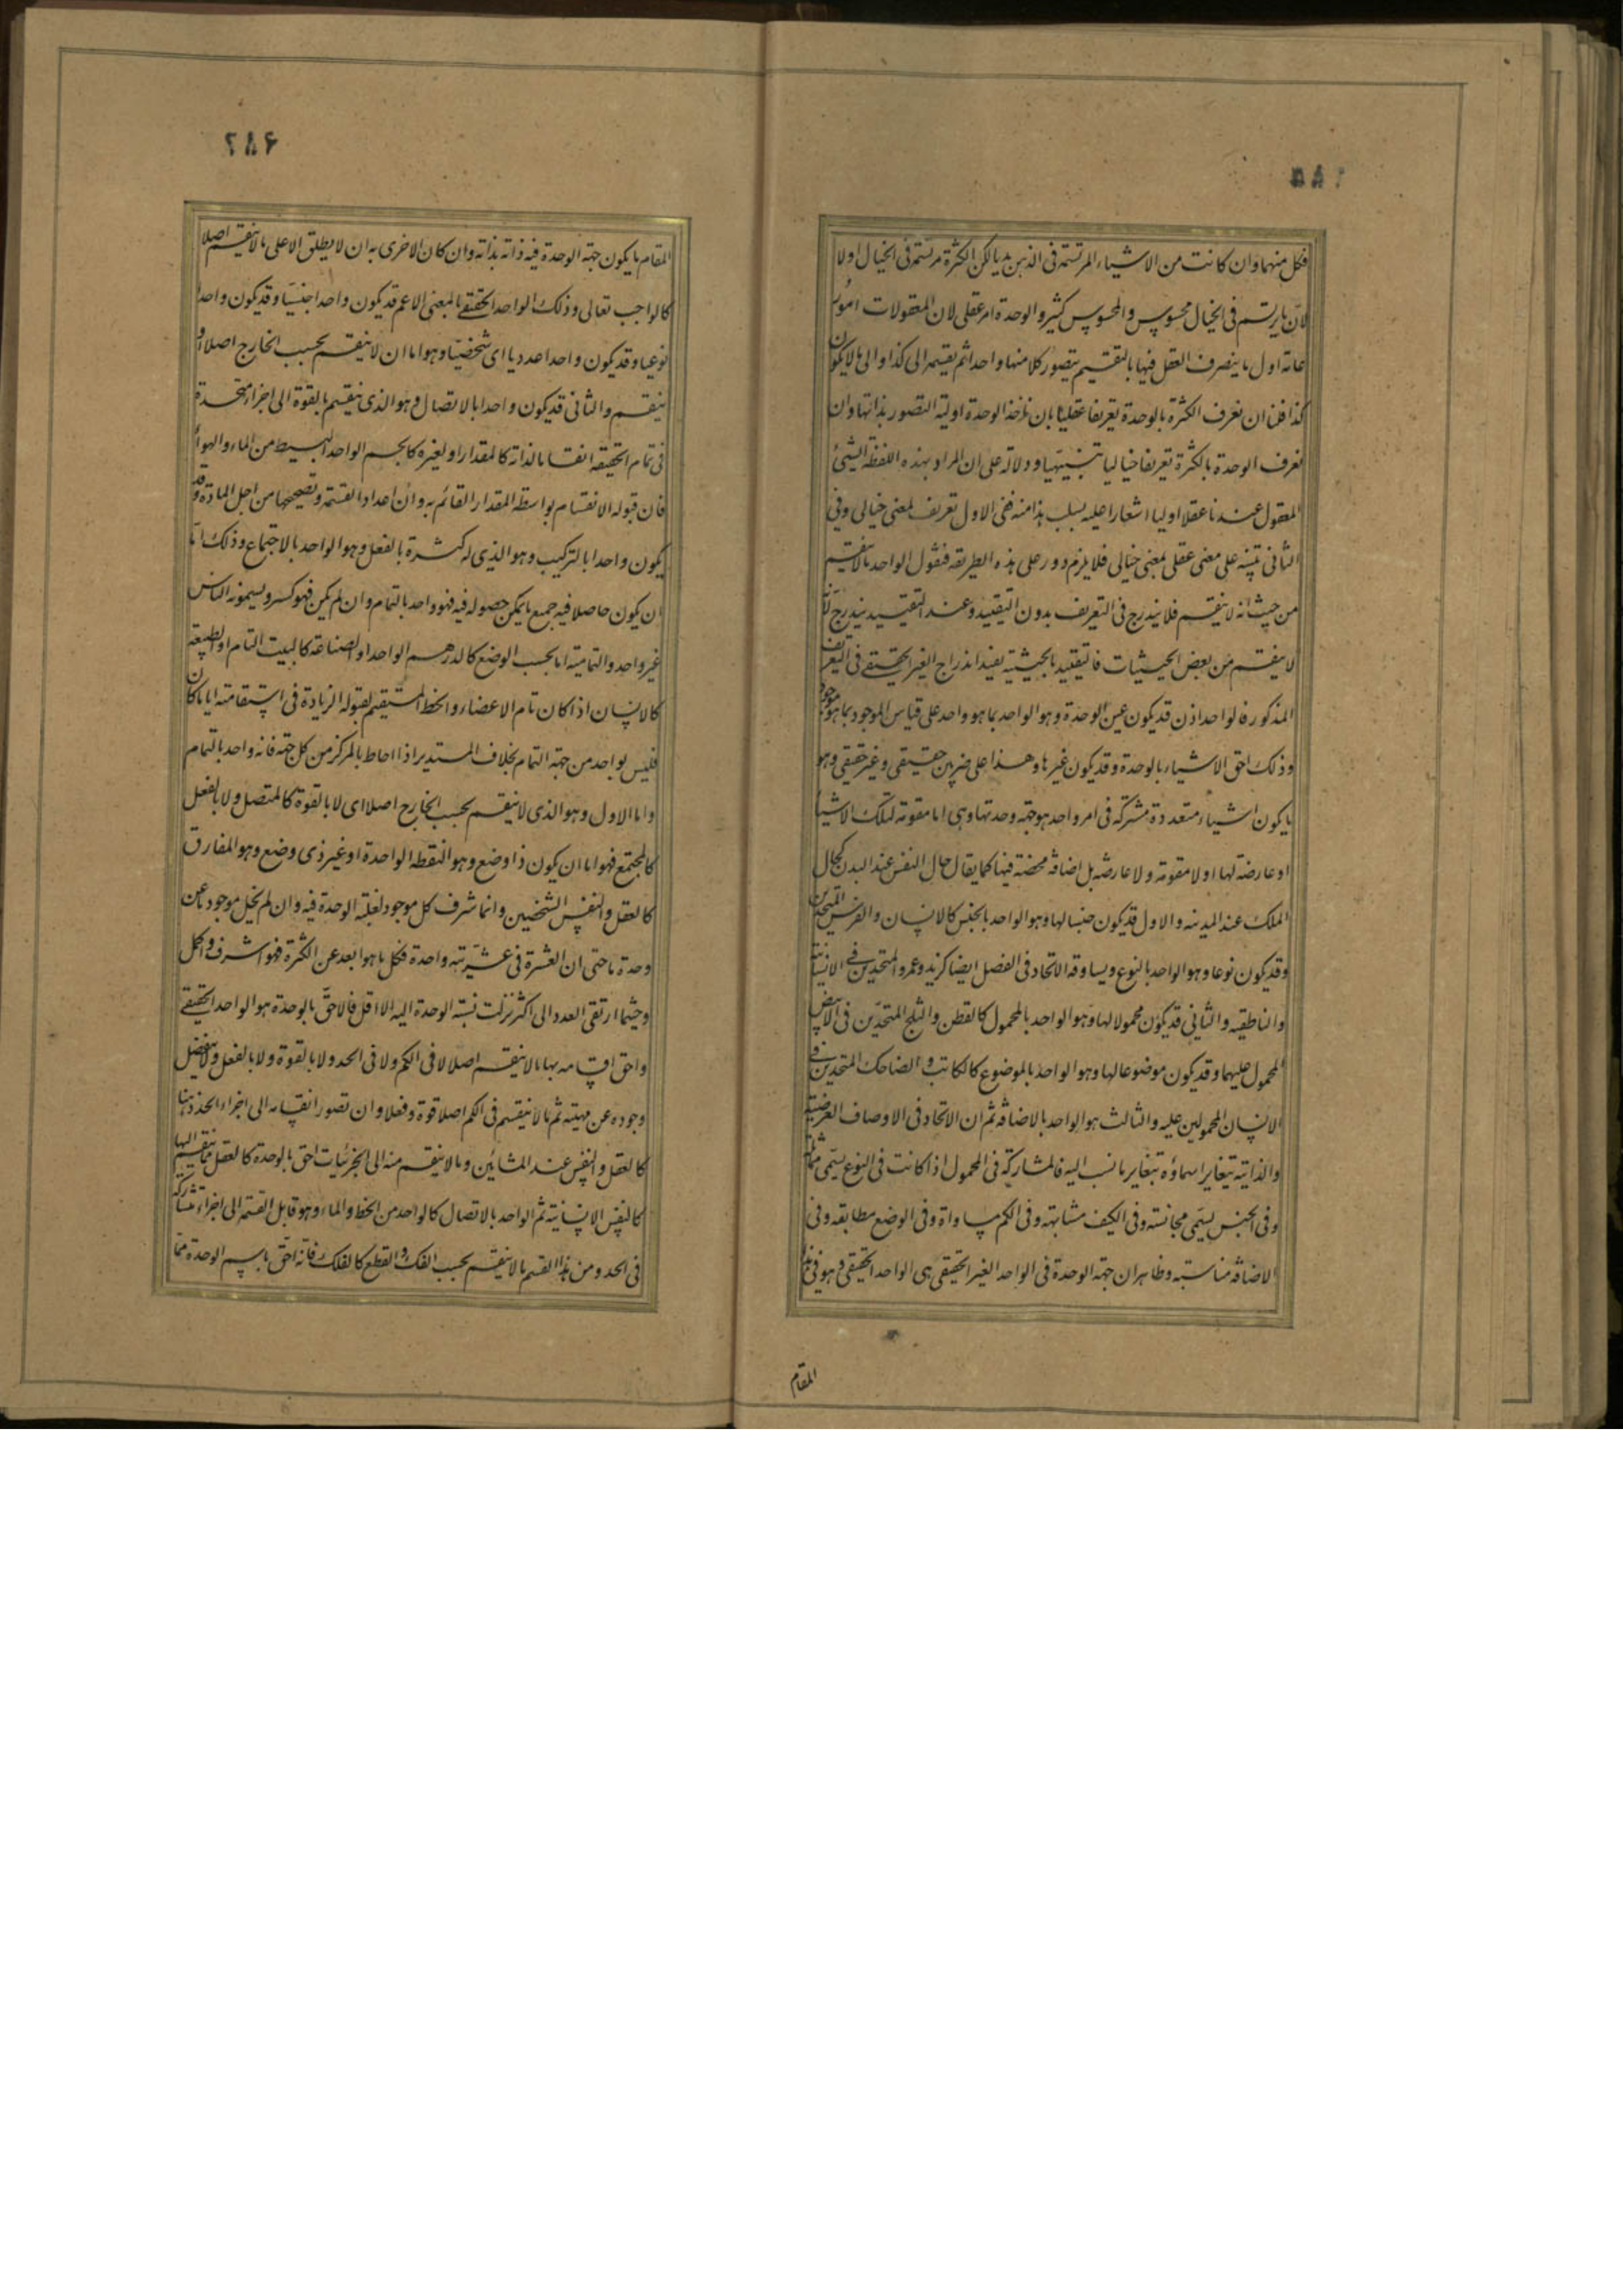 فكل منهما وان كانت من الاشياء المرتسمة فى الذهن بديا لكن الكثرة مرتسمة فى الخيال اولا
لان ما يرتسم فى الخيال محسوس والمحسوس كثير والوحدة امر عقلى لان المعقولات امور
عامة اول ما يتصرف العقل فيها بالتقسيم يتصور كلا منها واحدا ثم يقسمه الى كذا والى ما لا يكون
كذا فلنا ان نعرف الكثرة بالوحدة تعريفا عقليا بان ناخذ الوحدة اولية التصور بذاتها وان
نعرف الوحدة بالكثرة تعريفا خياليا تنبيهيا ودلالة على ان المراد بهذه اللفظة الشئ
المعقول عندنا عقلا اوليا اشعارا عليه بسلب هذا منه ففى الاول تعريف لمعنى خيالى وفى
الثانى تنبيه على معنى عقلى بمعنى خيالى فلا يلزم دور على هذه الطريقة فنقول الواحد ما لا ينقسم
من حيث انه لا ينقسم فلا يندرج فى التعريف بدون التقييد وعند التقييد يندرج
لا ينقسم من بعض الحيثيات فالتقييد بالحيثية يفيد اندراج الغير الحقيقى فى التعريف
المذكور فالواحد اذن قد يكون عين الوحدة وهو الواحد بما هو واحد على قياس الموجود بما هو موجود
وذلك احق الاشياء بالوحدة وقد يكون غيرها وهذا على ضربين حقيقى وغير حقيقى وهو
ما يكون اشياء متعددة مشتركة فى امر واحد هو جهة وحدتها وهى اما مقومة لتلك الاشياء
او عارضة لها او لا مقومة ولا عارضة بل اضافة محضة فيها كما يقال حال النفس عند البدن كحال
الملك عند المدينة والاول قد يكون جنسا لها وهو الواحد بالجنس كالانسان والفرس المتحدين
وقد يكون نوعا وهو الواحد بالنوع ويساوقه الاتحاد فى الفصل ايضا كزيد وعمرو المتحدين فى الانسانية
والناطقية والثانى قد يكون محمولا لها وهو الواحد بالمحمول كالقطن والثلج المتحدين فى الابيض
المحمول عليهما وقد يكون موضوعا لها وهو الواحد بالموضوع كالكاتب والضاحك المتحدين فى
الانسان المحمولين عليه والثالث هو الواحد بالاضافة ثم ان الاتحاد فى الاوصاف العرضية
والذاتية يتغاير اسماؤه بتغاير ما نسب اليه فالمشاركة فى المحمول اذا كانت فى النوع يسمى مماثلة
وفى الجنس يسمى مجانسة وفى الكيف مشابهة وفى الكم مساواة وفى الوضع مطابقة وفى
الاضافة مناسبة وظاهر ان جهة الوحدة فى الواحد الغير الحقيقى هى الواحد الحقيقى وهو فى هذا
المقام
٦٨٦
المقام ما يكون جهة الوحدة فيه ذاته بذاته وان كان الاخرى به ان لا يطلق الا على ما لا ينقسم اصلا
كالواجب تعالى وذلك الواحد الحقيقى بالمعنى الاعم قد يكون واحدا جنسيا وقد يكون واحدا
نوعيا وقد يكون واحدا عدديا اى شخصيا وهو اما ان لا ينقسم بحسب الخارج اصلا او
ينقسم والثانى قد يكون واحدا بالاتصال وهو الذى ينقسم بالقوة الى اجزاء متحدة
فى تمام الحقيقة انقساما لذاته كالمقدار او لغيره كالجسم الواحد البسيط من الماء والهواء
فان قبوله الانقسام بواسطة المقدار القائم به وان اعداد القسمة وتصحيحها من اجل المادة وقد
يكون واحدا بالتركيب وهو الذى له كثرة بالفعل وهو الواحد بالاجتماع وذلك اما
ان يكون حاصلا فيه جميع ما يمكن حصوله فيه فهو واحد بالتمام وان لم يكن فهو كسر ويسمونه الناس
غير واحد والتمامية اما بحسب الوضع كالدرهم الواحد او الصناعة كالبيت التام او الطبيعة
كالانسان اذا كان تام الاعضاء والخط المستقيم لقبوله الزيادة فى استقامته اياما كان
فليس بواحد من جهة التمام بخلاف المستدير اذا احاط بالمركز من كل جهة فانه واحد بالتمام
واما الاول وهو الذى لا ينقسم بحسب الخارج اصلا اى لا بالقوة كالمتصل ولا بالفعل
كالمجتمع فهو اما ان يكون ذا وضع وهو النقطة الواحدة او غير ذى وضع وهو المفارق
كالعقل والنفس الشخصيين وانما شرف كل موجود لغلبة الوحدة فيه وان لم يخل موجود ما عن
وحدة ما حتى ان العشرة فى عشريته واحدة فكل ما هو ابعد عن الكثرة فهو اشرف واكمل
وحيثما ارتقى العدد الى اكثر نزلت نسبة الوحدة اليه الا اقل فالاحق بالوحدة هو الواحد الحقيقى
واحق اقسامه بها ما لا ينقسم اصلا لا فى الكم ولا فى الحد ولا بالقوة ولا بالفعل ولا ينفصل
وجوده عن مهيته ثم ما لا ينقسم فى الكم اصلا قوة وفعلا وان تصور انقسامه الى اجزاء الحد ذهنا
كالعقل والنفس عند المشائين وما لا ينقسم منه الى الجزئيات احق بالوحدة كالعقل مما ينقسم اليها
كالنفس الانسانية ثم الواحد بالاتصال كالواحد من الخط والماء وهو قابل القسمة الى اجزاء متشاركة
فى الحد ومن هذا القسم ما لا ينقسم بحسب الفك والقطع كالفلك فانه احق باسم الوحدة مما